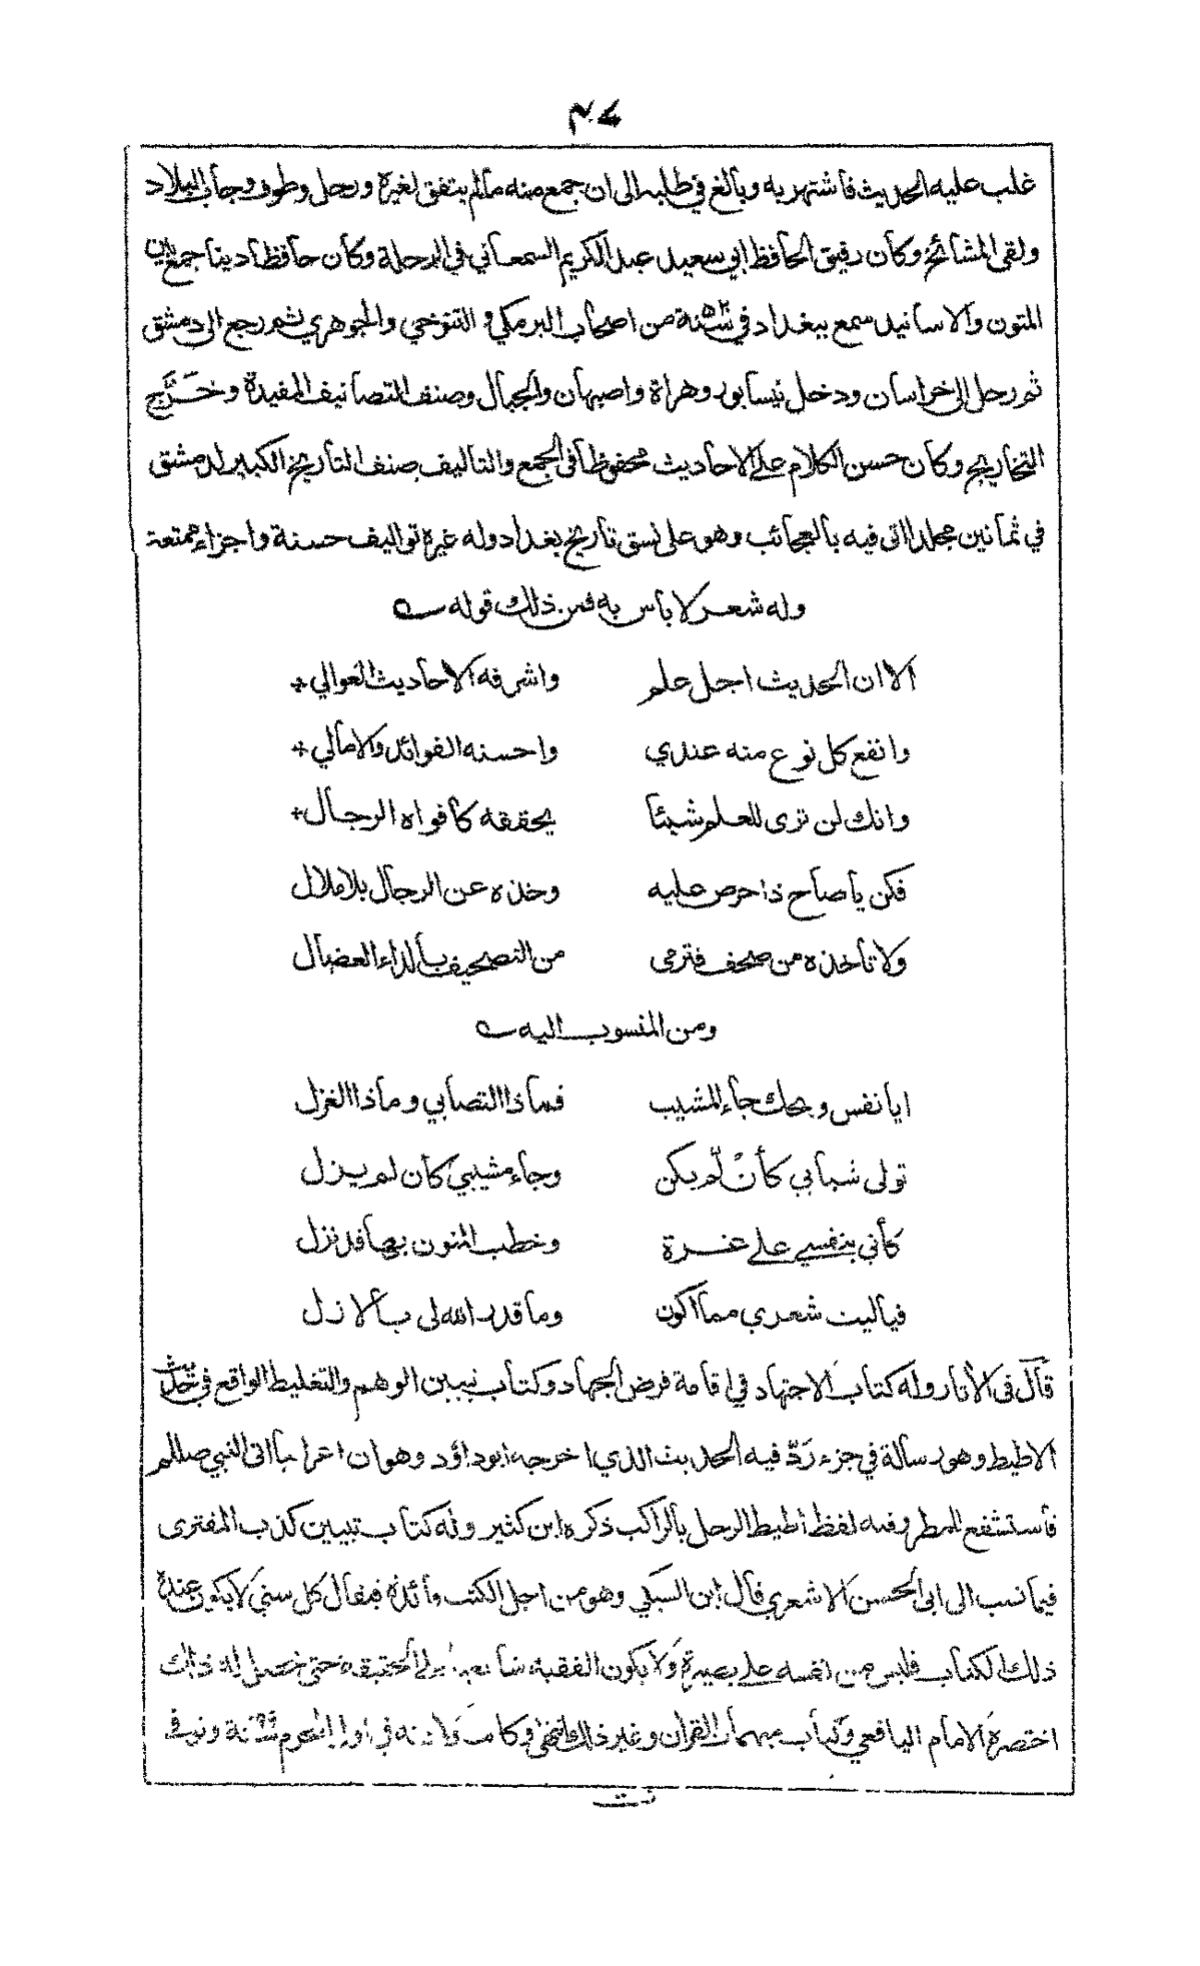 غلب عليه الحديث فاشتهر به وبالغ في طلبه الى ان جمع منه مالم يتفق لغيره ورحل وطوف وجاب البلاد
ولقى المشائخ وكان رفيق الحافظ ابي سعيد عبد الكريم السمعاني في الرحلة وكان حافظا دينا جمع بين
المتون والاسانيد سمع ببغداد في سنة ٥٢ من اصحاب البرمكي و التنوخي والجوهري ثم رجع الى دمشق
ثم رحل الى خراسان ودخل نيسابور وهراة واصبهان والجبال وصنف التصانيف المفيدة وخَرَّج
التخاريج وكان حسن الكلام على الاحاديث محفوظا في الجمع والتاليف صنف التاريخ الكبير لدمشق
في ثمانين مجلدا اتى فيه بالعجائب وهو على نسق تاريخ بغداد وله غيره تواليف حسنة واجزاء ممتعة
وله شعر لا باس به فمن ذلك قوله
الا ان الحديث اجل علم واشرفه الاحاديث العوالي
وانفع كل نوع منه عندي واحسنه الفوائد والامالي
وانك لن ترى للعلم شيئا يحققه كافواه الرجال
فكن يا صاح ذا حرص عليه وخذه عن الرجال بلا ملال
ولا تاخذه من صحف فترمى من التصحيف بالداء العضال
ومن المنسوب اليه
ايا نفس ويحك جاء المشيب فماذا التصابي وماذا الغزل
تولى شبابي كأنْ لّم يكن وجاء مشيبي كان لم يزل
كأني بنفسي على غرة وخطب المنون بها قد نزل
فياليت شعري مما اكون وما قدر الله لى بالازل
قال في الآثار وله كتاب الاجتهاد في اقامة فرض الجهاد وكتاب تبيين الوهم والتغليط الواقع في حديث
الاطيط وهو رسالة في جزء رَدّ فيه الحديث الذي اخرجه ابوداؤد وهو ان اعرابيا اتى النبي صللم
فاستشفع للمطر وفيه لفظ اطيط الرحل بالراكب ذكره ابن كثير وله كتاب تبيين كذب المفترى
فيما نسب الى ابى الحسن الاشعري قال ابن السبكي وهو من اجل الكتب وائدة فيقال كل سني لا يكون عنده
ذلك الكتاب فليس من نفسه على بصيرة ولا يكون الفقيه شافعيا على الحقيقة حتى يحصل له ذلك
اختصره الامام اليافعي وكتاب مبهمات القران وغير ذلك وكانت ولادته في اول المحرم سنة ٤٩٩ وتوفي